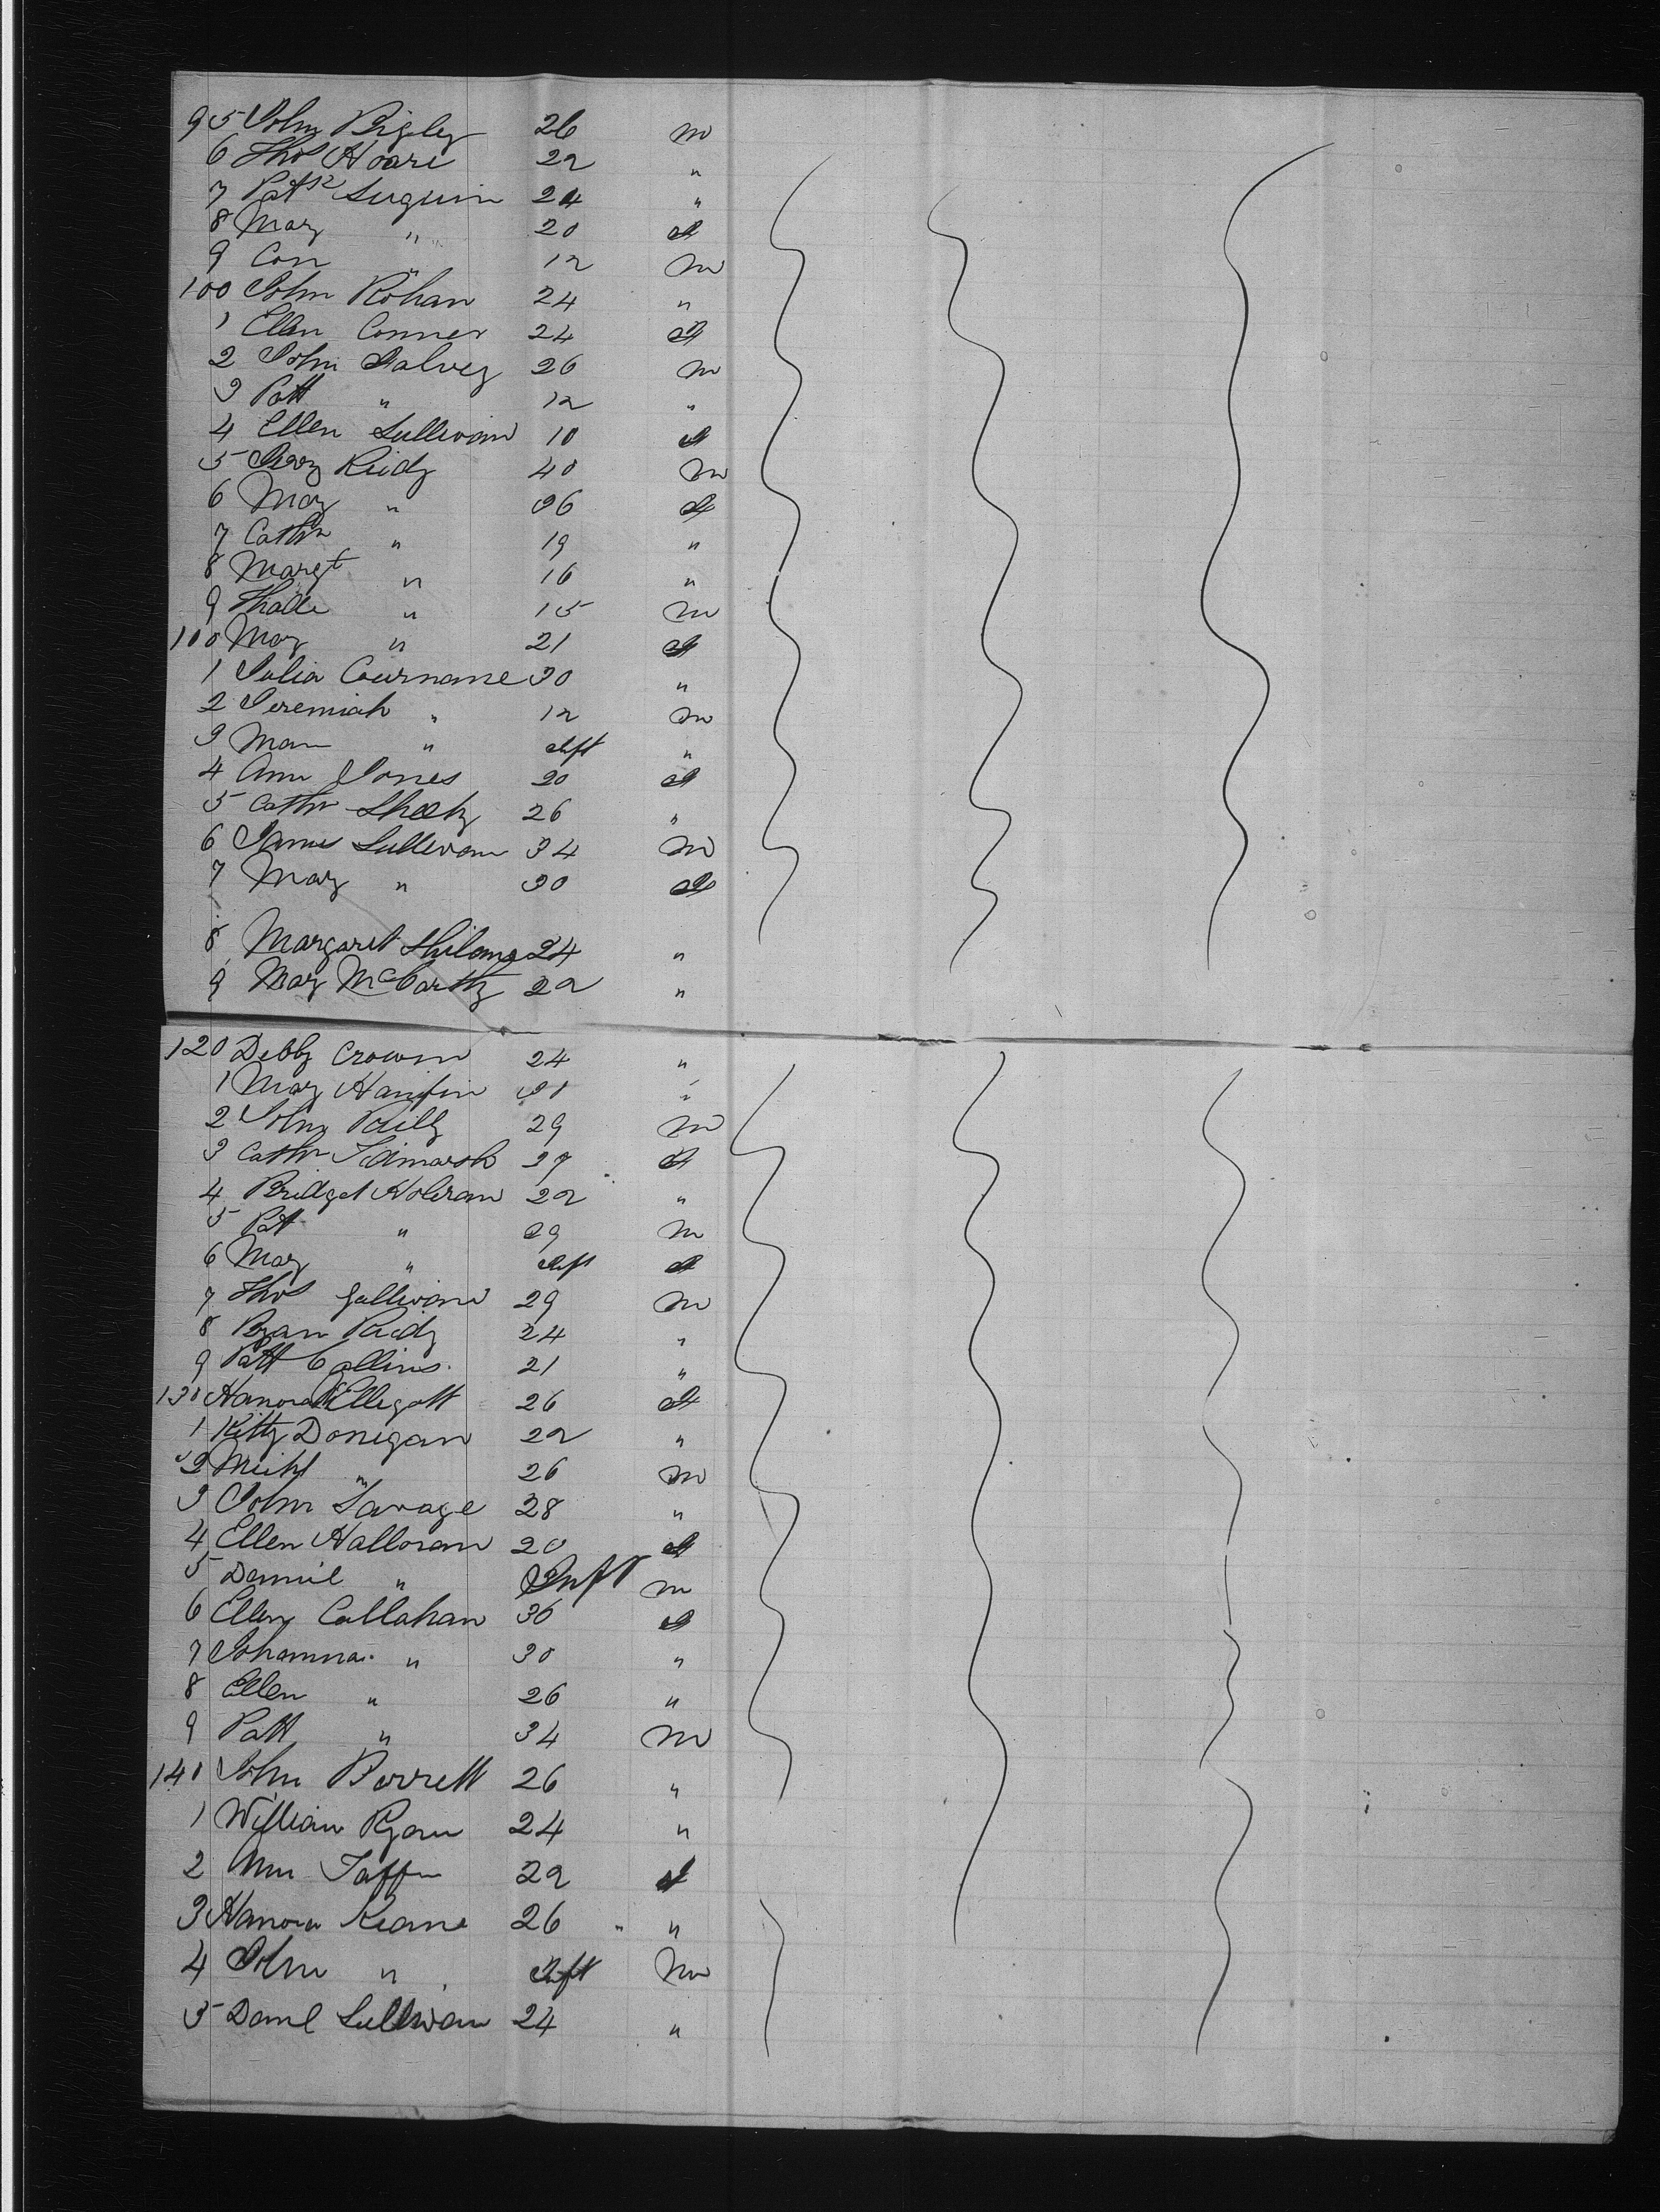 95 John Bigley 26 m
6 Thos Hoare 22 "
7 Patk Suguin 24 "
8 Mary " 20 f
9 Con " 12 m
100 John Rohan 24 "
1 Ellen Conner 24 f
2 John Galvey 26 m
3 Patt " 12 "
4 Ellen Sullivan 10 f
5 Reidy 40 m
6 Mary " 36 f
7 Cathn " 19 "
8 Margt " 16 "
9 Thade " 15 m
100 Mary " 21 f
1 Julia Cournane 30 "
2 Jeremiah " 12 m
3 " Inft "
4 Ann Jones 20 f
5 Cathn Sheehy 26 "
6 James Sullivan 34 m
7 Mary " 30 f
8 Margaret 24 "
9 Mary McCarthy 22 "
120 Debby Crown 24 "
1 Mary Hanifin "
2 John Reilly 29 m
3 Cathn 37 f
4 Bridget Holeran 22 "
5 Pat " 29 m
6 Mary " Inft f
7 Thos Sullivan 29 m
8 Bryan Reidy 24 "
9 Patt Collins 21 "
130 Hanora McEllegott 26 f
1 Kitty Donegan 22 "
2 Michl " 26 m
3 John Savage 28 "
4 Ellen Halloran 20 f
5 Daniel " Inft m
6 Ellen Callahan 36 f
7 Johanna " 30 "
8 Ellen " 26 "
9 Patt " 34 m
140 John Barrett 26 "
1 William Ryan 24 "
2 Ann Taffe 22 f
3 Hanora Keane 26 " "
4 John " Inft m
5 Danl Sullivan 24 "